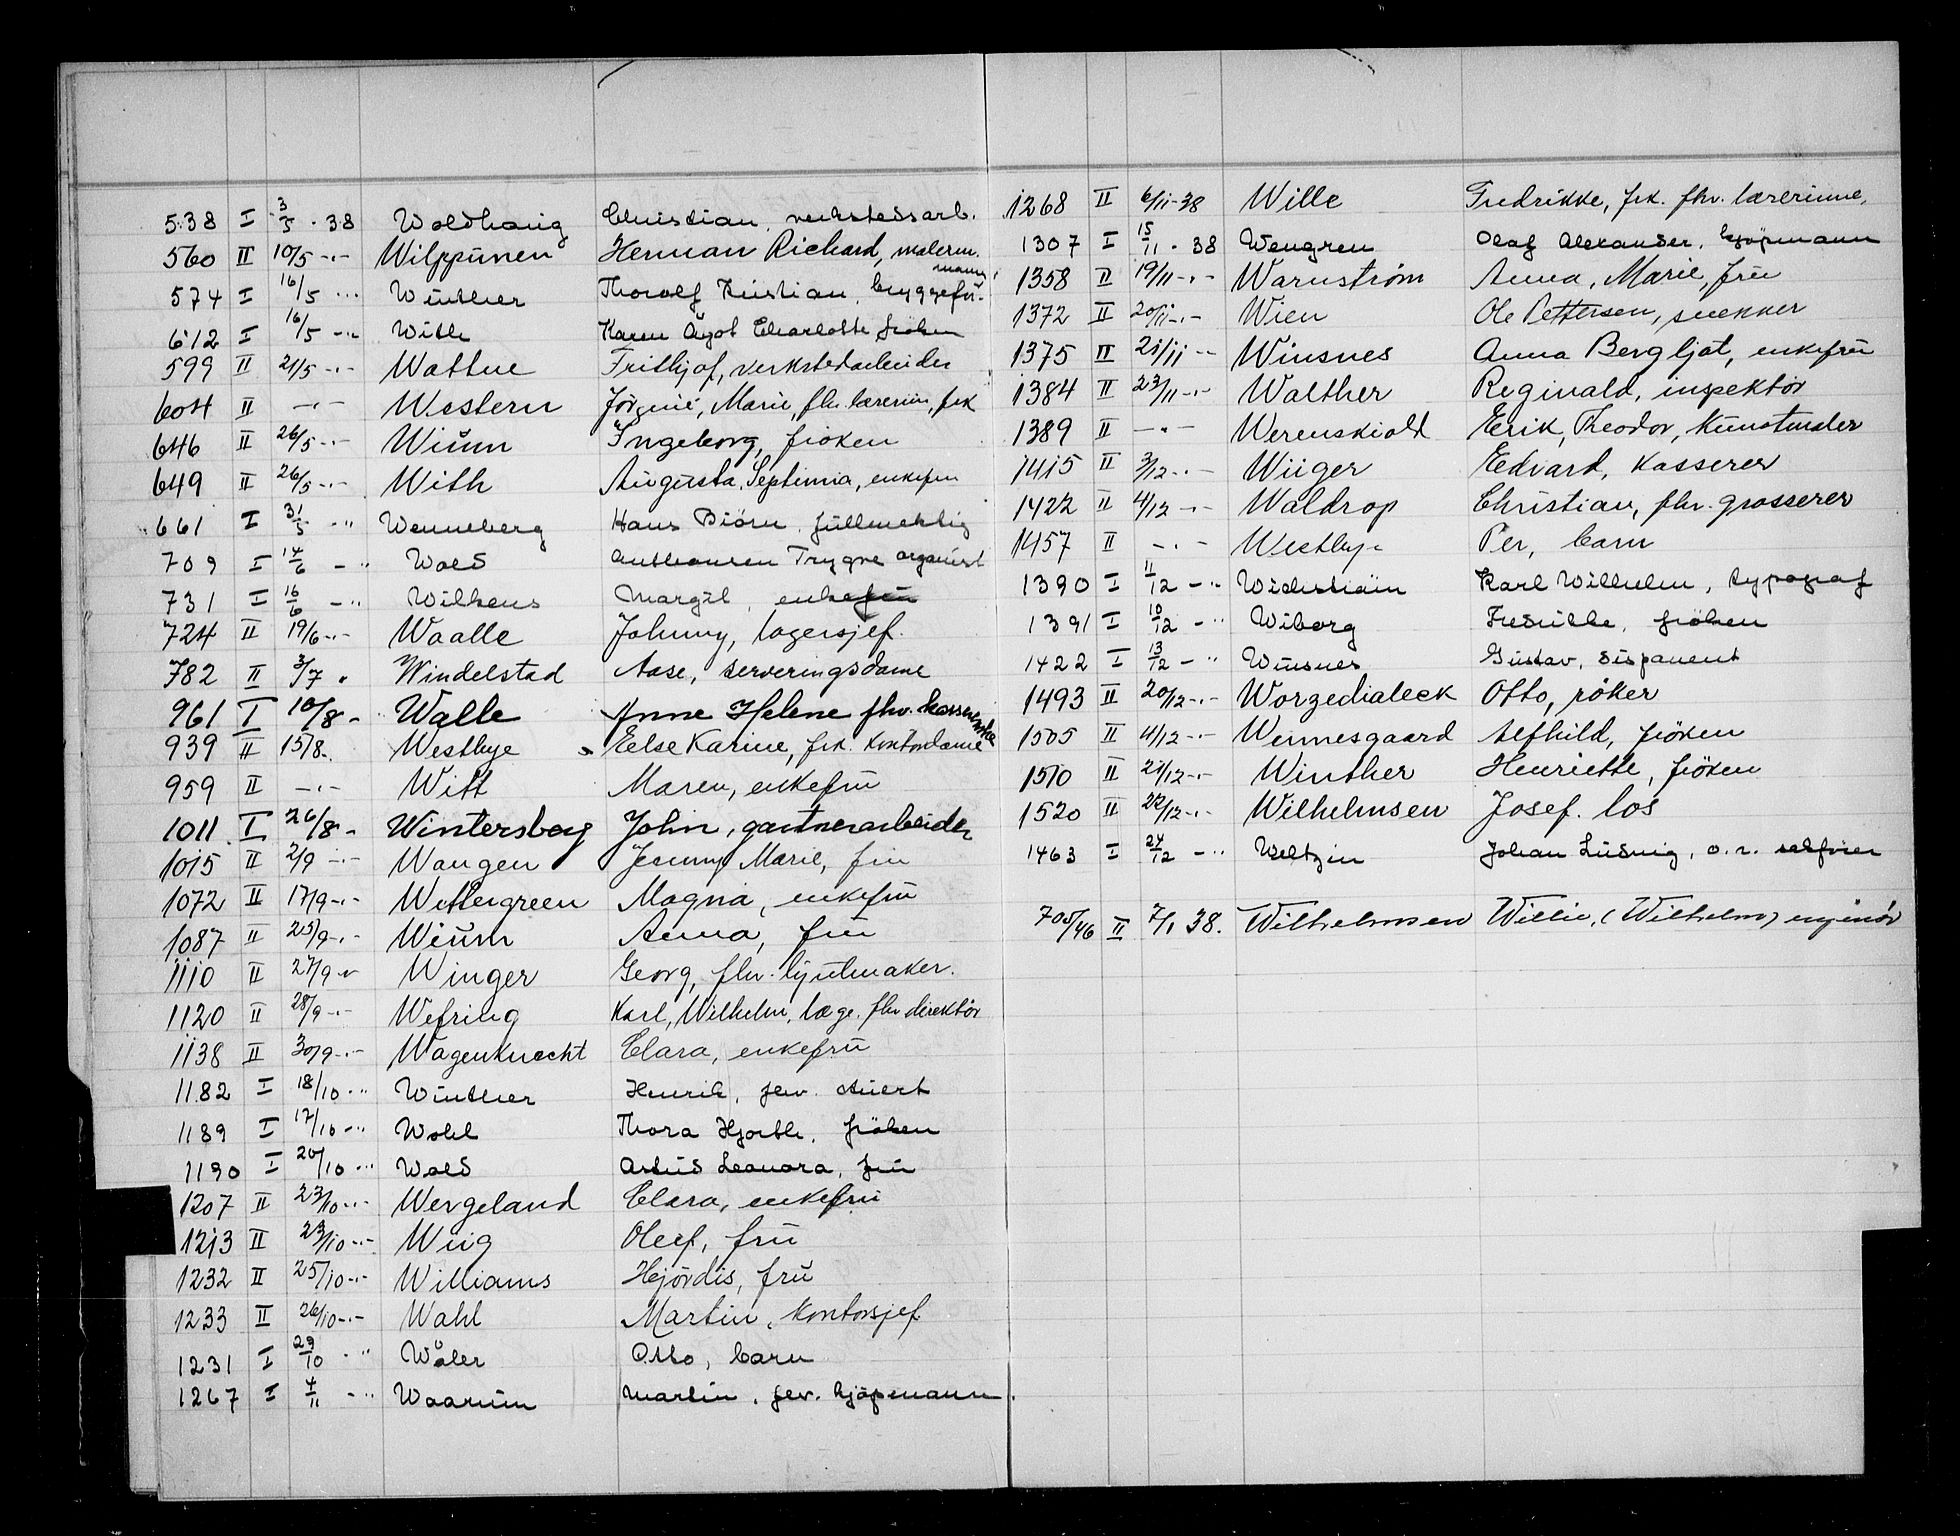 538 I 3/5 - 38 Woldhaug Christian, verkstedsarb.
560 II 10/5 -"- Wilppunen Herman Richard, malerm.
574 I 16/5 -"- Winther Thorolf Kristian, bryggeformann
612 I 16/5 -"- With Karen Ågot Charlotte frøken
599 II 21/5 -"- Wattne Frithjof, verkstedarbeider
604 II -"- Western Jörgine, Marie, fhv. lærerin, frk
646 II 26/5 -"- Wiűm Ingeborg, frøken
649 II 26/5 -"- With Augusta, Septimia, enkefru
661 I 31/5 -"- Wenneberg Hans Biörn, fullmektig
709 I 14/6 -"- Wold Trygve organist
731 I 16/6 -"- Wilkens Margit, enkefru
724 II 19/6 -"- Waalle Johnny, lagersjef.
782 II 3/7 " Windelstad Aase, serveringsdame
961 I 10/8 - Walle Anne Helene fhv. kasserske
939 II 15/8 - Westbye Else Karine, frk. kontordame
959 II -"- Witt Maren, enkefru
1011 I 26/8 - Wintersborg John, gartnerarbeider
1015 II 2/9 -"- Wangen Jenny Marie, fru
1072 II 17/9 -"- Wettergreen Magna, enkefru
1087 II 25/9 -"- Wiűm Anna, fru
1110 II 27/9 " Winger Georg, fhv. lysmaker.
1120 II 28/9 -"- Wefring Karl, Wilhelm, læge. fhv direktör
1138 II 30/9 -"- Wagenknecht Clara, enkefru
1182 I 18/10 -"- Winther Henrik, fhv.
1189 I 17/10 -"- Wohl Thora Hjorth, frøken
1190 I 20/10 -"- Wold Leonora, fru
1207 II 23/10 -"- Wergeland Clara, enkefru
1213 II 23/10 -"- Wiig Oleef, fru
1232 II 25/10 -"- Williams Hjördis, fru
1233 II 26/10 -"- Wahl Martin, kontorsjef
1231 I 29/10 -"- Wåler Otto, barn
1267 I 4/11 -"- Waarum Martin, fhv. kjøpmann.
1268 II 6/11-38 Wille Fredrikke, frk. fhv. lærerinne,
1307 I 15/11 - 38 Wengren Olaf Alexander, kjøpmann
1358 II 19/11 -"- Warnström Anna, Marie, fru
1372 II 20/11 -"- Wien Ole Pettersen, snekker
1375 II 21/11 -"- Winsnes Anna Bergljot, enkefru
1384 II 23/11 -"- Walther Reginald, inspektör
1389 II -"- Werenskiold Erik, Theodor, kunstmaler
1415 II 3/12 -"- Wiiger Edvard, kasserer
1422 II 4/12 -"- Waldrop Christian, fhv. grosserer
1457 II -"- Westbye Per, barn
1390 I 11/12 -"- Karl Wilhelm, typograf
1391 I 10/12 -"- Wiborg Fredrikke, frøken
1422 I 13/12 -"- Winsnes Gustav, disponent
1493 II 20/12 -"- Worzedialeck Otto, röker
1505 II 4/12 -"- Wennesgaard Alfhild, fröken
1510 II 21/12 -"- Winther Henriette, fröken
1520 II 22/12 -"- Wilhelmsen Josef. los
1463 I 24/12 -"- Weltzin Johan Ludvig, o.r. sakfører
705/46 II 7/1 38. Wilhelmsen Willie, (Wilhelm) ingeniör